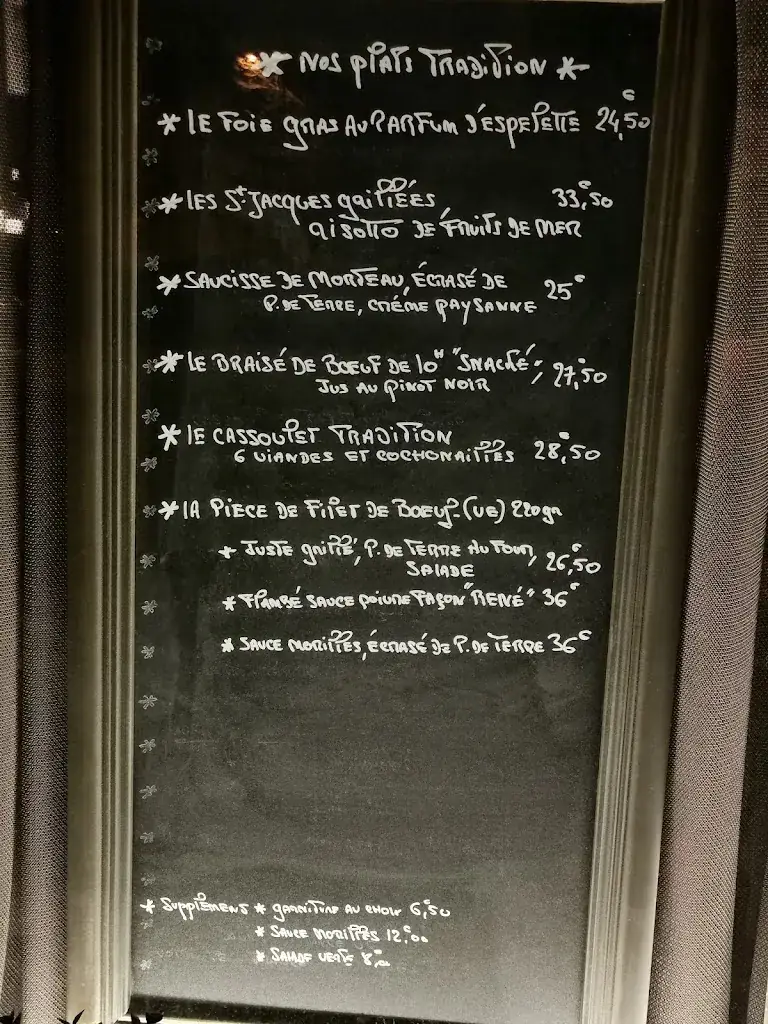 * NOS PLATS TRADITION *
* LE FOIE GRAS AU PARFUM D'ESPELETTE 24,€50
* LES St JACQUES GRILLÉES, 33,€50
RISOTTO DE FRUITS DE MER
* SAUCISSE DE MORTEAU, ÉCRASÉ DE 25€
P. DE TERRE, CRÉME PAYSANNE
* LE BRAISÉ DE BOEUF DE 10H "SNACKÉ", 27,€50
JUS AU PINOT NOIR
* LE CASSOULET TRADITION
6 VIANDES ET COCHONAILLES 28,€50
* LA PIÈCE DE FILET DE BOEUF (UE) 220gr
+ JUSTE GRILLÉ, P. DE TERRE AU FOUR, 26,€50
SALADE
* FLAMBÉ SAUCE POIVRE FAÇON "RENÉ" 36€
* SAUCE MORILLES, ÉCRASÉ DE P. DE TERRE 36€
* SUPPLÉMENT * GARNITURE AU CHOIX 6,€50
* SAUCE MORILLES 12,€00
* SALADE VERTE 8,€